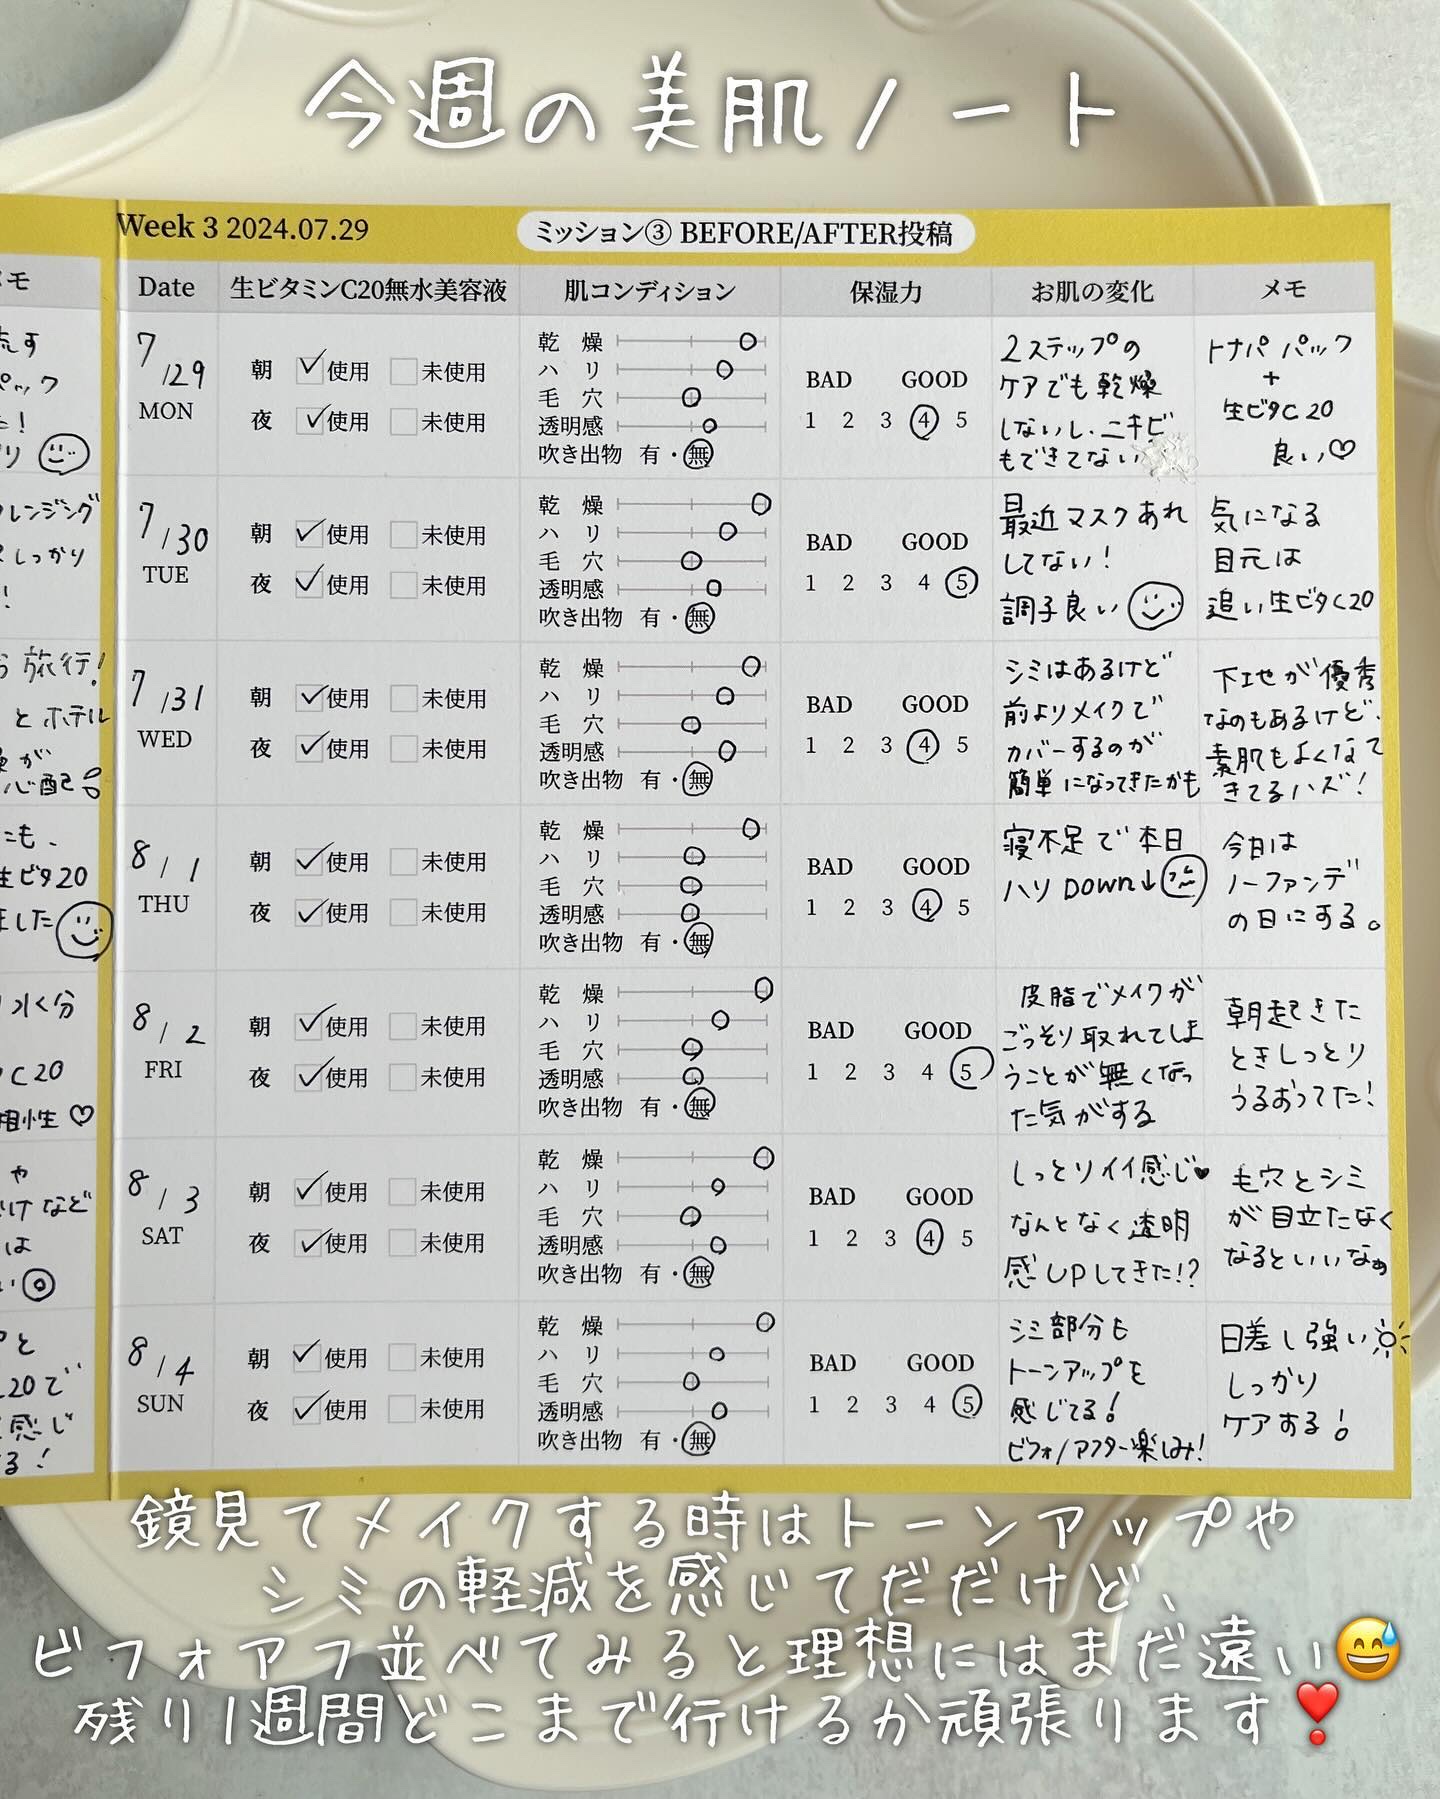 今週の美肌ノート
Week 3 2024.07.29
ミッション③ BEFORE/AFTER投稿
メモ
Date 生ビタミンC20無水美容液 肌コンディション 保湿力 お肌の変化 メモ
7/29
MON
朝 使用 未使用
夜 使用 未使用
乾 燥
ハ リ
毛 穴
透明感
吹き出物 有・無
BAD GOOD
1 2 3 4 5
2ステップの
ケアでも乾燥
しないし、ニキビ
もできてない
トナパパック
+
生ビタC20
良い♡
7/30
TUE
朝 使用 未使用
夜 使用 未使用
乾 燥
ハ リ
毛 穴
透明感
吹き出物 有・無
BAD GOOD
1 2 3 4 5
最近マスクあれ
してない!
調子良い
気になる
目元は
追い生ビタC20
7/31
WED
朝 使用 未使用
夜 使用 未使用
乾 燥
ハ リ
毛 穴
透明感
吹き出物 有・無
BAD GOOD
1 2 3 4 5
シミはあるけど
前よりメイクで
カバーするのが
簡単になってきたかも
下地が優秀
なのもあるけど、
素肌もよくなって
きてるハズ!
8/1
THU
朝 使用 未使用
夜 使用 未使用
乾 燥
ハ リ
毛 穴
透明感
吹き出物 有・無
BAD GOOD
1 2 3 4 5
寝不足で本日
ハリDOWN↓
今日は
ノーファンデ
の日にする。
8/2
FRI
朝 使用 未使用
夜 使用 未使用
乾 燥
ハ リ
毛 穴
透明感
吹き出物 有・無
BAD GOOD
1 2 3 4 5
皮脂でメイクが
ごっそり取れてしま
うことが無くなっ
た気がする
朝起きた
ときしっとり
うるおってた!
8/3
SAT
朝 使用 未使用
夜 使用 未使用
乾 燥
ハ リ
毛 穴
透明感
吹き出物 有・無
BAD GOOD
1 2 3 4 5
しっとりイイ感じ♥
なんとなく透明
感UPしてきた!?
毛穴とシミ
が目立たなく
なるといいなぁ
8/4
SUN
朝 使用 未使用
夜 使用 未使用
乾 燥
ハ リ
毛 穴
透明感
吹き出物 有・無
BAD GOOD
1 2 3 4 5
シミ部分も
トーンアップを
感じてる!
ビフォ/アフター楽しみ!
日差し強い☀
しっかり
ケアする!
鏡見てメイクする時はトーンアップや
シミの軽減を感じてだだけど、
ビフォアフ並べてみると理想にはまだ遠い😅
残り1週間どこまで行けるか頑張ります❣️